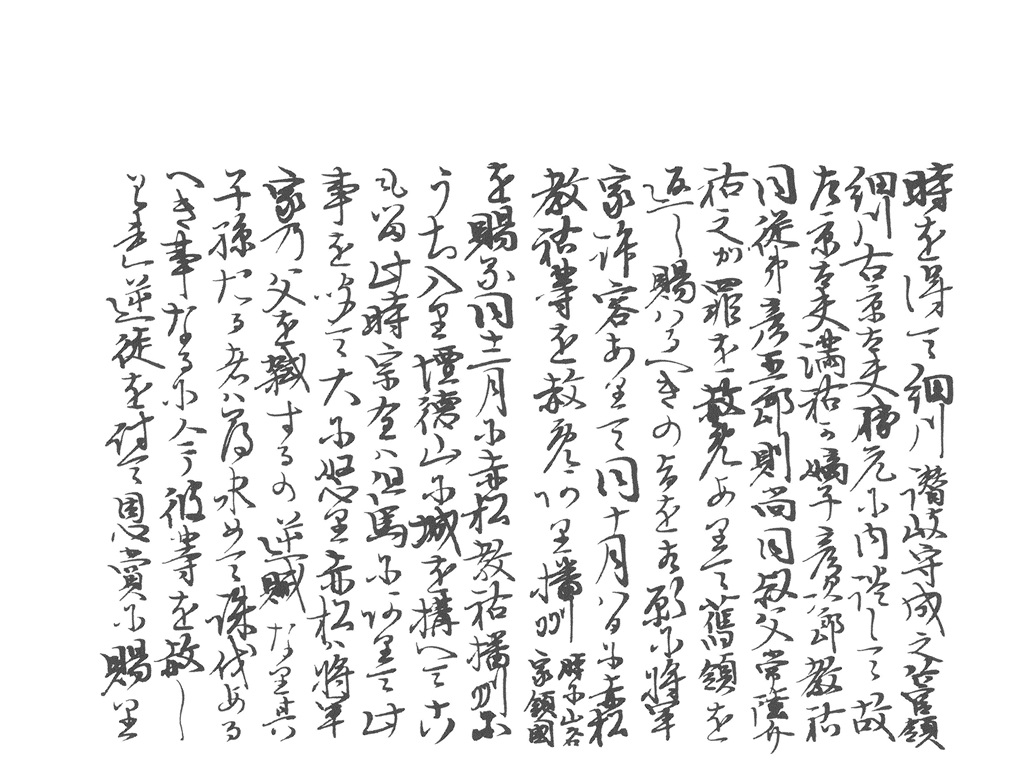 時を得て細川讃岐守成之右官領
細川右京大夫勝元に内談して故
左京大夫満祐か嫡子彦次郎教祐
同従弟彦五郎則尚同叔父常陸介
祐之か罪を赦免ありて舊領を
返し賜ハるへきの旨を言願に将軍
家許容ありて同十月八日に赤松
教祐等を赦免ありて播州時に山名家領國
を賜る同十二月に赤松教祐播州に
うち入里壇徳山に城を構へて
此時宗全ハ但馬にありて此
事を聞て大に怒里赤松ハ将軍
家乃父を弑するの逆賊なり其
子孫たる者ハ尋求めて誅伐ある
へき事なるに今彼等を赦し
逆徒を討て恩賞に賜里